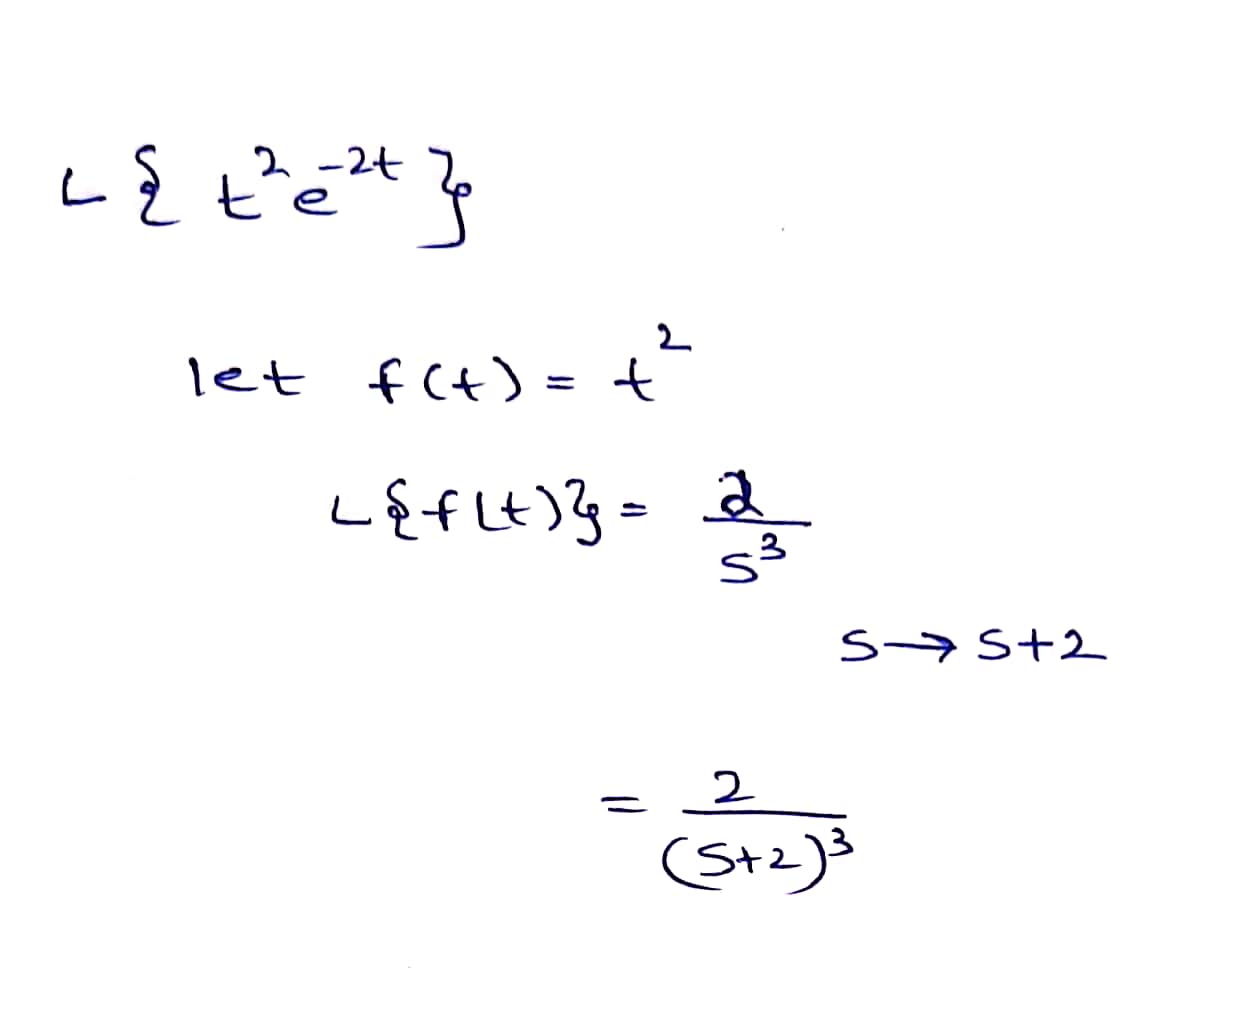 L{ t²e⁻²ᵗ }
let f(t) = t²
L{f(t)} = 2/s³
s→s+2
= 2/(s+2)³